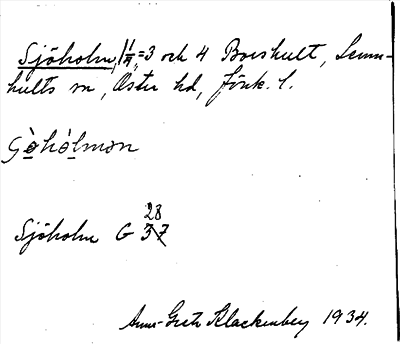 Sjöholm, 1 1/4 = 3 och 4 Boeshult, Lemn-
hults sn, Östra hd, Jönk. l.
Sjöholm G 37
28
Anna-Greta Klackenberg 1934.